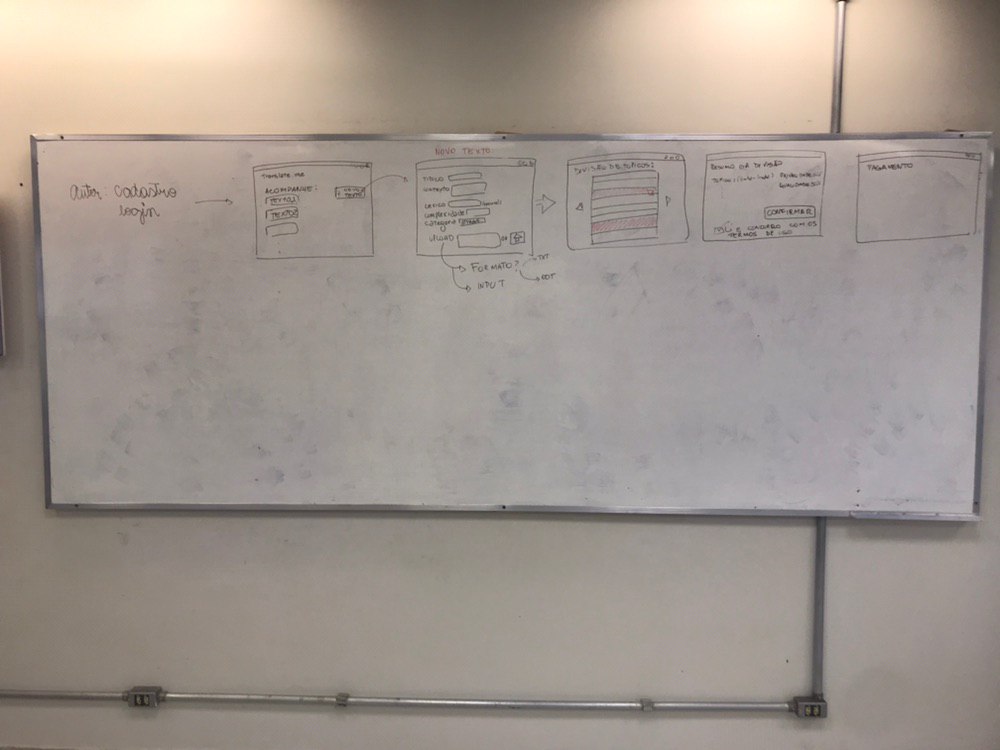 Autor, cadastro
login
translate.me
ACOMPANHE:
TEXTO 1
TEXTO 2
+ NOVO
TEXTO
NOVO TEXTO
TÍTULO
CONTEXTO
complexidade
categoria
UPLOAD
OU
FORMATO?
INPUT
TXT
ODT
DIVISÃO DE TÓPICOS:
RESUMO DA DIVISÃO
CONFIRMAR
LI E CONCORDO COM OS
TERMOS DE USO
PAGAMENTO